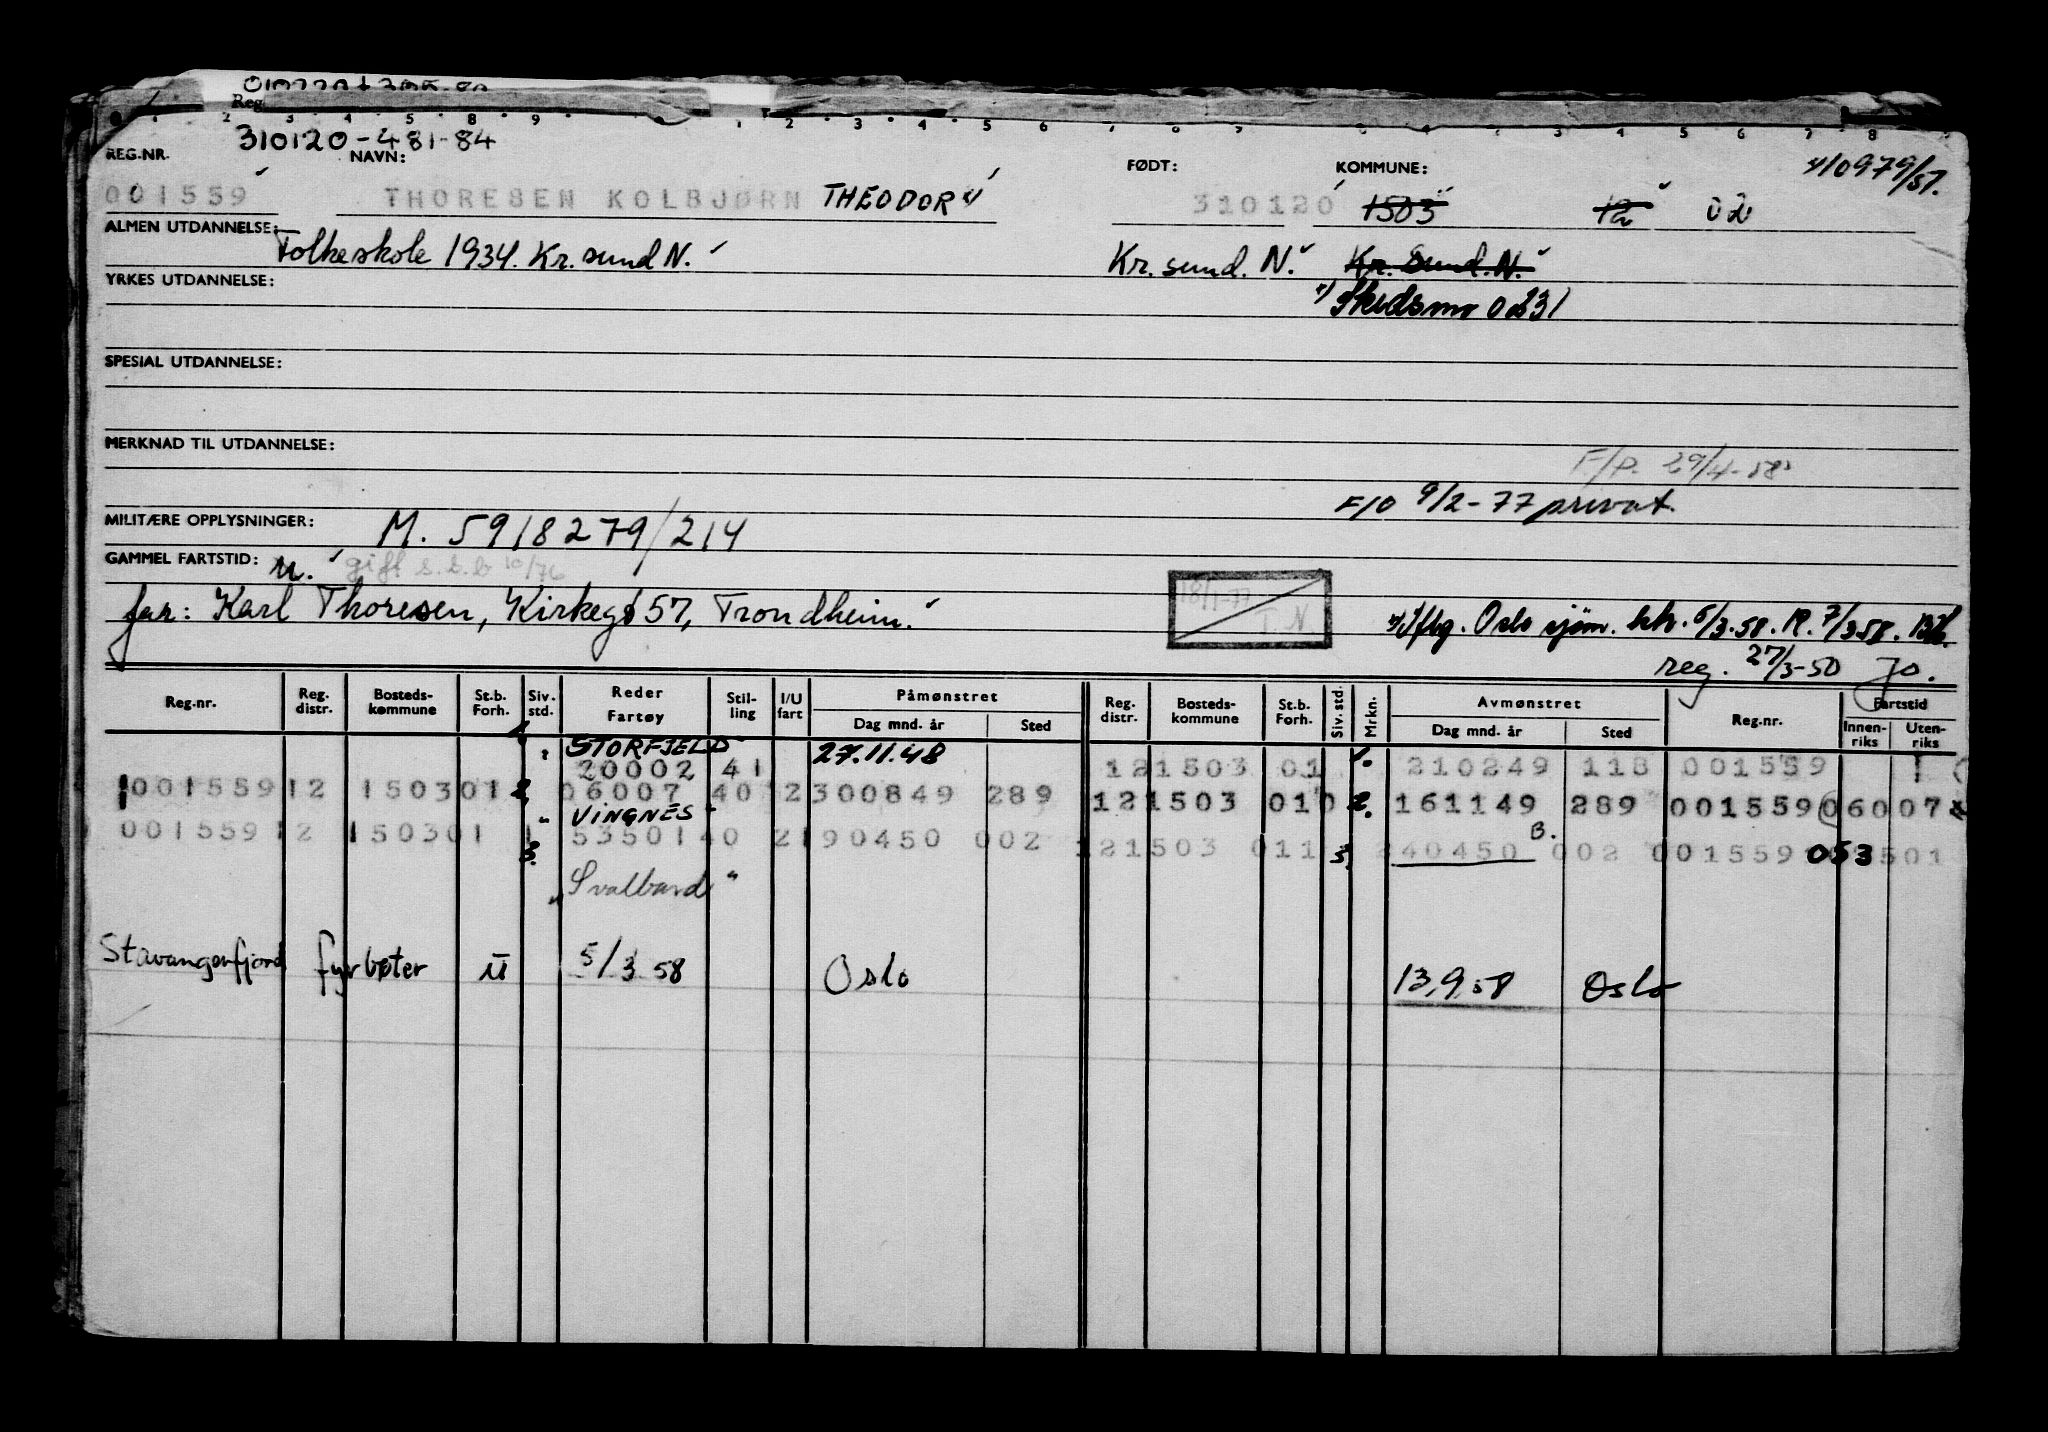 310120-481-84
REG.NR. NAVN: FØDT: KOMMUNE: 10979/57.
001559 THORESEN KOLBJØRN THEODOR 310120 1503 12 02
ALMEN UTDANNELSE: Folkeskole 1934. Kr.sund N. Kr.sund. N. Kr.Sund.N.
YRKES UTDANNELSE: Skedsmo 0231
SPESIAL UTDANNELSE:
MERKNAD TIL UTDANNELSE:
F/p. 29/4-58
F/O 9/2-77 privat.
MILITÆRE OPPLYSNINGER: M. 5918279/214
GAMMEL FARTSTID: u. gift s.s.b 10/76
18/1-77 T.N
far: Karl Thoresen, Kirkegt 57, Trondheim. Iflg. Oslo sjøm. kk. 6/3.58. R. 7/3 58.
reg. 27/3-50 Jo.
Reg.nr. Reg. distr. Bosteds-kommune St.b. Forh. Siv. std. Reder Fartøy Stil-ling I/U fart Påmønstret Dag mnd. år Sted Reg. distr. Bosteds-kommune St.b. Forh. Siv. std. Mrkn. Avmønstret Dag mnd. år Sted Reg.nr. Fartstid Innen-riks Uten-riks
1. "STORFJELD" 27.11.48
20002 41 121503 01 1. 210249 118 001559 1
001559 12 150301 2. 06007 40 2 300849 289 121503 010 2. 161149 289 001559 06007
"VINGNES"
001559 12 150301 1 53501 40 2 190450 002 121503 011 3. 240450 B. 002 001559 053501
3.
"Svalbard"
Stavangerfjord fyrbøter U 5/3 58 Oslo 13.9.58 Oslo